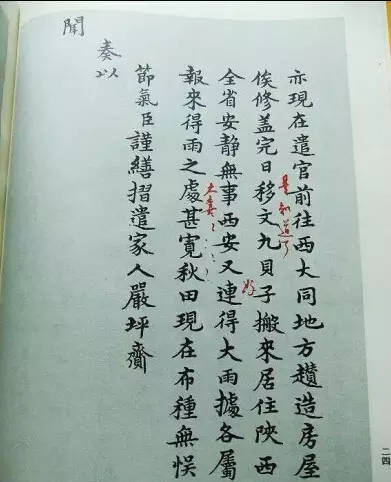 亦現在遣官前往西大同地方趲造房屋
是知道了
俟修盖完日移文九貝子搬來居住陝西
好
全省安靜無事西安又連得大雨據各屬
報來得雨之處甚寬秋田現在布種無悞
節氣臣謹繕摺遣家人嚴坪齎
奏以
聞
二四